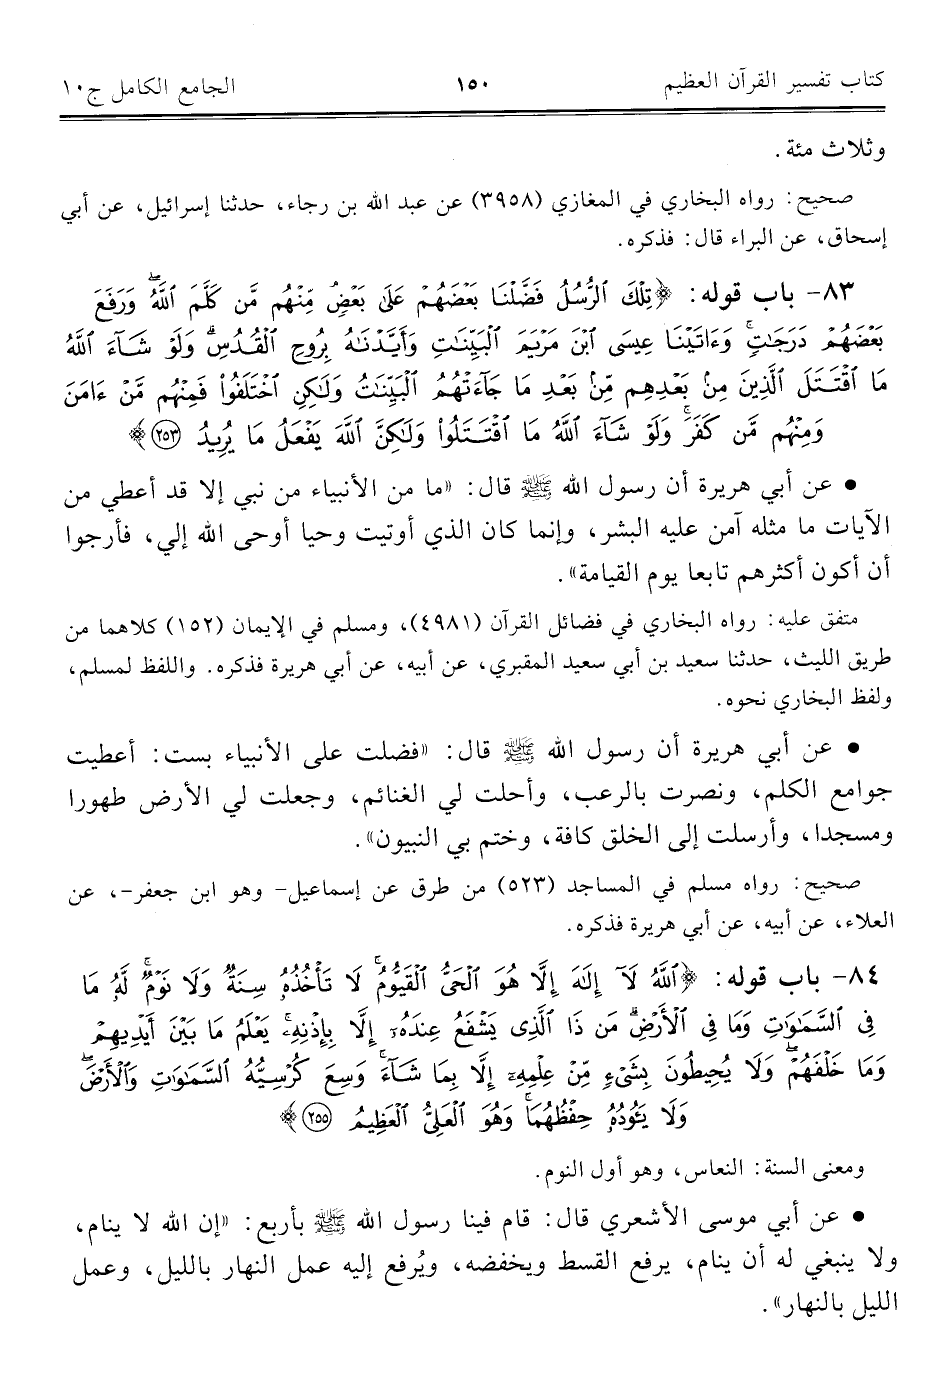 كتاب تفسير القرآن العظيم ١٥٠ الجامع الكامل ج١٠
وثلاث مئة.
صحيح: رواه البخاري في المغازي (٣٩٥٨) عن عبد الله بن رجاء، حدثنا إسرائيل، عن أبي
إسحاق، عن البراء قال: فذكره.
٨٣- باب قوله: ﴿تِلْكَ ٱلرُّسُلُ فَضَّلْنَا بَعْضَهُمْ عَلَىٰ بَعْضٍ مِّنْهُم مَّن كَلَّمَ ٱللَّهُ وَرَفَعَ
بَعْضَهُمْ دَرَجَٰتٍ وَءَاتَيْنَا عِيسَى ٱبْنَ مَرْيَمَ ٱلْبَيِّنَٰتِ وَأَيَّدْنَٰهُ بِرُوحِ ٱلْقُدُسِ وَلَوْ شَآءَ ٱللَّهُ
مَا ٱقْتَتَلَ ٱلَّذِينَ مِنۢ بَعْدِهِم مِّنۢ بَعْدِ مَا جَآءَتْهُمُ ٱلْبَيِّنَٰتُ وَلَٰكِنِ ٱخْتَلَفُوا۟ فَمِنْهُم مَّنْ ءَامَنَ
وَمِنْهُم مَّن كَفَرَ وَلَوْ شَآءَ ٱللَّهُ مَا ٱقْتَتَلُوا۟ وَلَٰكِنَّ ٱللَّهَ يَفْعَلُ مَا يُرِيدُ ٢٥٣﴾
• عن أبي هريرة أن رسول الله ﷺ قال: «ما من الأنبياء من نبي إلا قد أعطي من
الآيات ما مثله آمن عليه البشر، وإنما كان الذي أوتيت وحيا أوحى الله إلي، فأرجوا
أن أكون أكثرهم تابعا يوم القيامة».
متفق عليه: رواه البخاري في فضائل القرآن (٤٩٨١)، ومسلم في الإيمان (١٥٢) كلاهما من
طريق الليث، حدثنا سعيد بن أبي سعيد المقبري، عن أبيه، عن أبي هريرة فذكره. واللفظ لمسلم،
ولفظ البخاري نحوه.
• عن أبي هريرة أن رسول الله ﷺ قال: «فضلت على الأنبياء بست: أعطيت
جوامع الكلم، ونصرت بالرعب، وأحلت لي الغنائم، وجعلت لي الأرض طهورا
ومسجدا، وأرسلت إلى الخلق كافة، وختم بي النبيون».
صحيح: رواه مسلم في المساجد (٥٢٣) من طرق عن إسماعيل- وهو ابن جعفر-، عن
العلاء، عن أبيه، عن أبي هريرة فذكره.
٨٤- باب قوله: ﴿ٱللَّهُ لَآ إِلَٰهَ إِلَّا هُوَ ٱلْحَىُّ ٱلْقَيُّومُ لَا تَأْخُذُهُۥ سِنَةٌ وَلَا نَوْمٌ لَّهُۥ مَا
فِى ٱلسَّمَٰوَٰتِ وَمَا فِى ٱلْأَرْضِ مَن ذَا ٱلَّذِى يَشْفَعُ عِندَهُۥٓ إِلَّا بِإِذْنِهِۦ يَعْلَمُ مَا بَيْنَ أَيْدِيهِمْ
وَمَا خَلْفَهُمْ وَلَا يُحِيطُونَ بِشَىْءٍ مِّنْ عِلْمِهِۦٓ إِلَّا بِمَا شَآءَ وَسِعَ كُرْسِيُّهُ ٱلسَّمَٰوَٰتِ وَٱلْأَرْضَ
وَلَا يَـُٔودُهُۥ حِفْظُهُمَا وَهُوَ ٱلْعَلِىُّ ٱلْعَظِيمُ ٢٥٥﴾
ومعنى السنة: النعاس، وهو أول النوم.
• عن أبي موسى الأشعري قال: قام فينا رسول الله ﷺ بأربع: «إن الله لا ينام،
ولا ينبغي له أن ينام، يرفع القسط ويخفضه، ويُرفع إليه عمل النهار بالليل، وعمل
الليل بالنهار».